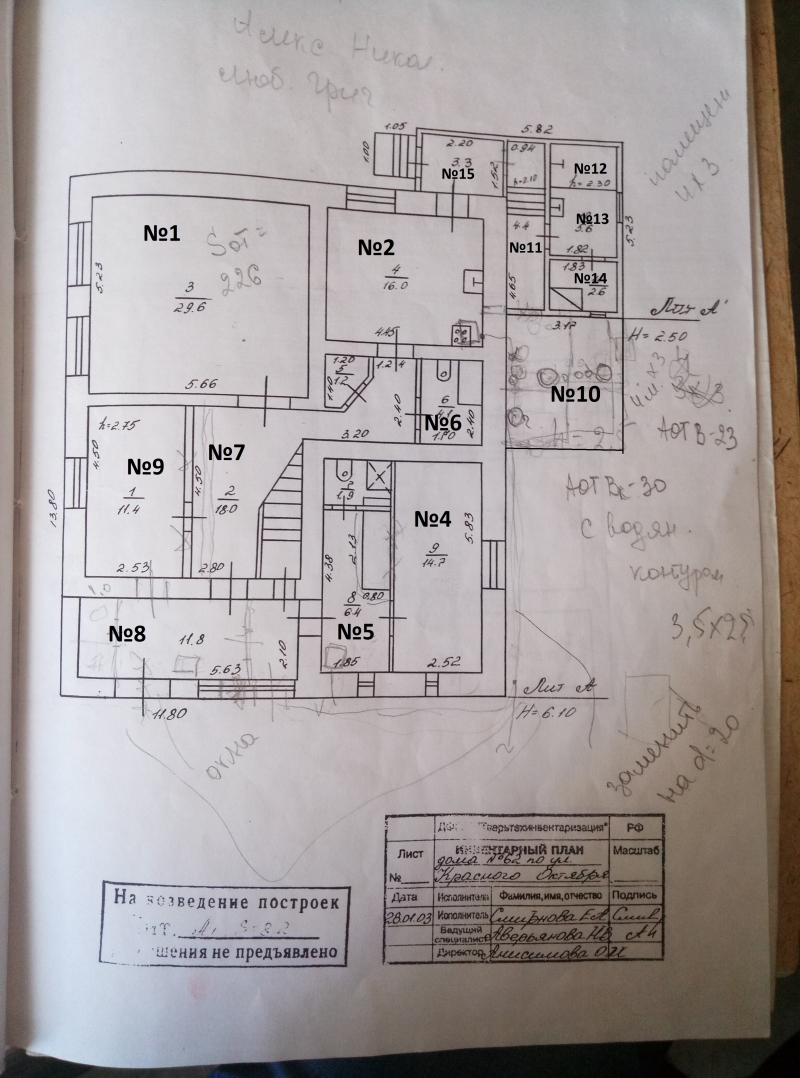 Алекс Никол.
люб. Григ
помещен
4 х 3
1.05
1.00
5.82
2.20
3.3
№15
1.52
0.94
h=2.10
№12
h= 2.30
№13
3.6
1.82
5.23
№1
Sот=
226
5.23
3
29.6
5.66
№2
4
16.0
4.45
4.4
№11
4.65
1.83
№14
2.6
Лит А'
3.17
H= 2.50
1.20
5
1.2
1.40
1.24
2.40
6
4.1
№6
1.80
2.40
№10
АОТВ-23
3.20
h=2.75
4.50
№9
1
11.4
2.53
13.80
№7
4.50
2
18.0
2.80
7
1.9
№4
9
14.7
5.83
2.52
АОТВк-30
с водян.
контуром
3,5х2
4.38
2.13
0.80
8
6.4
№5
1.85
№8
11.8
5.63
2.10
11.80
Лит А
H= 6.10
окна
заменить
на d=20
На возведение построек
шения не предъявлено
"Тверьтехинвентаризация" РФ
Лист ИНВЕНТАРНЫЙ ПЛАН Масштаб
дома №62 по ул.
№ Красного Октября
Дата Исполнитель Фамилия, имя, отчество Подпись
28.01.03 Исполнитель Смирнова Е.А
Ведущий специалист Аверьянова Н.В
Директор Анисимова О.Н